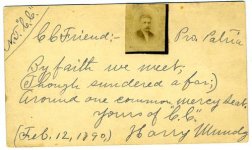 N.J. "C.C."
C C Friend:- Pro Patria
By faith we meet,
Though sundered afar;
Around one common mercy seat,
Yours of "C.C."
(Feb. 12, 1890) Harry Mundy